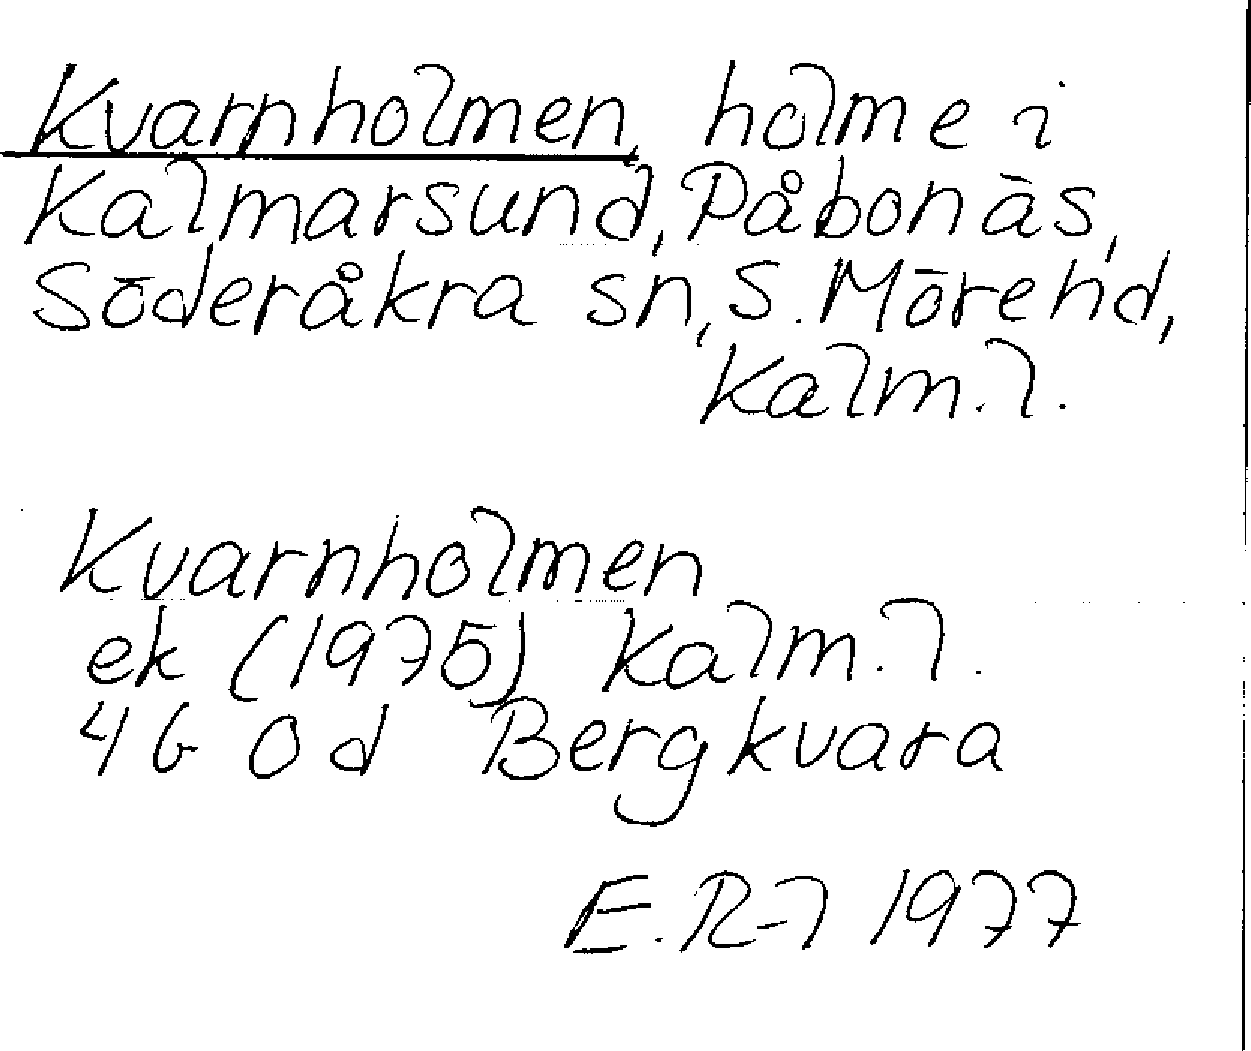 Kvarnholmen, holme i
Kalmarsund, Påbonäs,
Söderåkra sn, S. Möre hd,
Kalm. l.
Kvarnholmen
ek (1975) Kalm. l.
4G 0d Bergkvara
E. R-l 1977